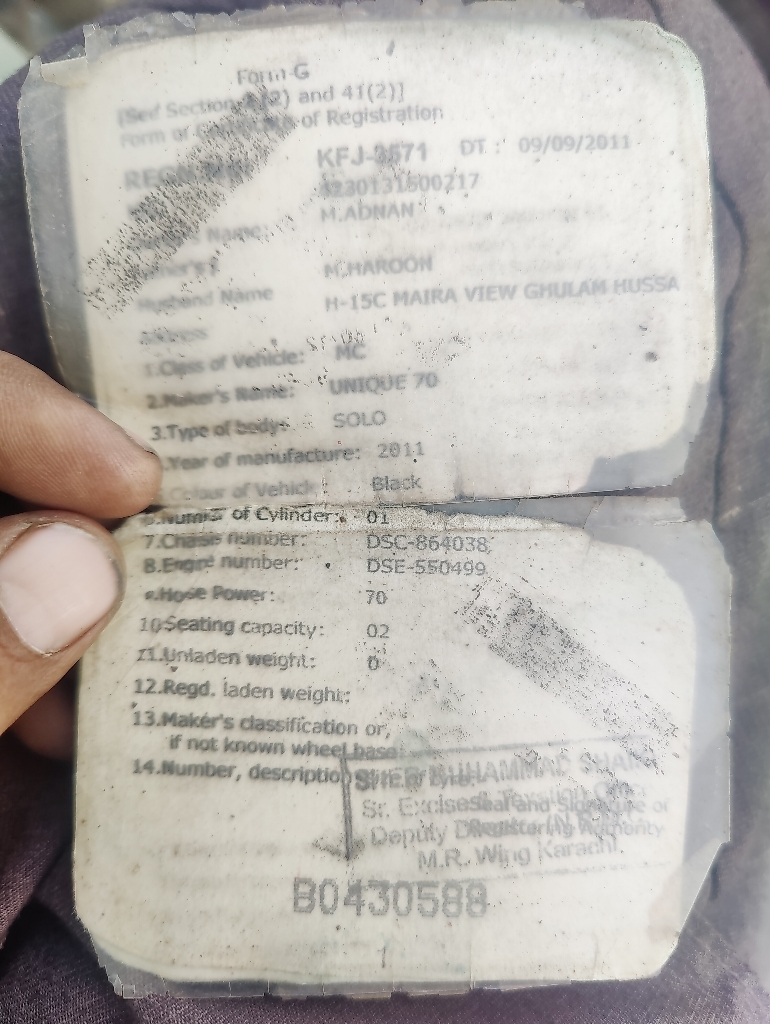 Form-G
[See Section 2) and 41(2)]
Form of of Registration
KFJ-3571 DT : 09/09/2011
M.ADNAN
Name:
M.HAROON
Husband Name
H-15C MAIRA VIEW GHULAM HUSSA
Address
1.Class of Vehicle: MC
2.Maker's Name: UNIQUE 70
3.Type of body: SOLO
.Year of manufacture: 2011
.Colour of Vehicle Black
6.Number of Cylinder: 01
7.Chasis number: DSC-864038
8.Engine number: DSE-550499
Hose Power: 70
10Seating capacity: 02
11.Unladen weight: 0
12.Regd. laden weight:
13.Maker's classification or,
if not known wheel base
14.Number, description
SHER MUHAMMAD
Sr. Excise & Taxation
Seal and Signature of
Deputy
Registering Authority
M.R. Wing Karachi.
B0430588